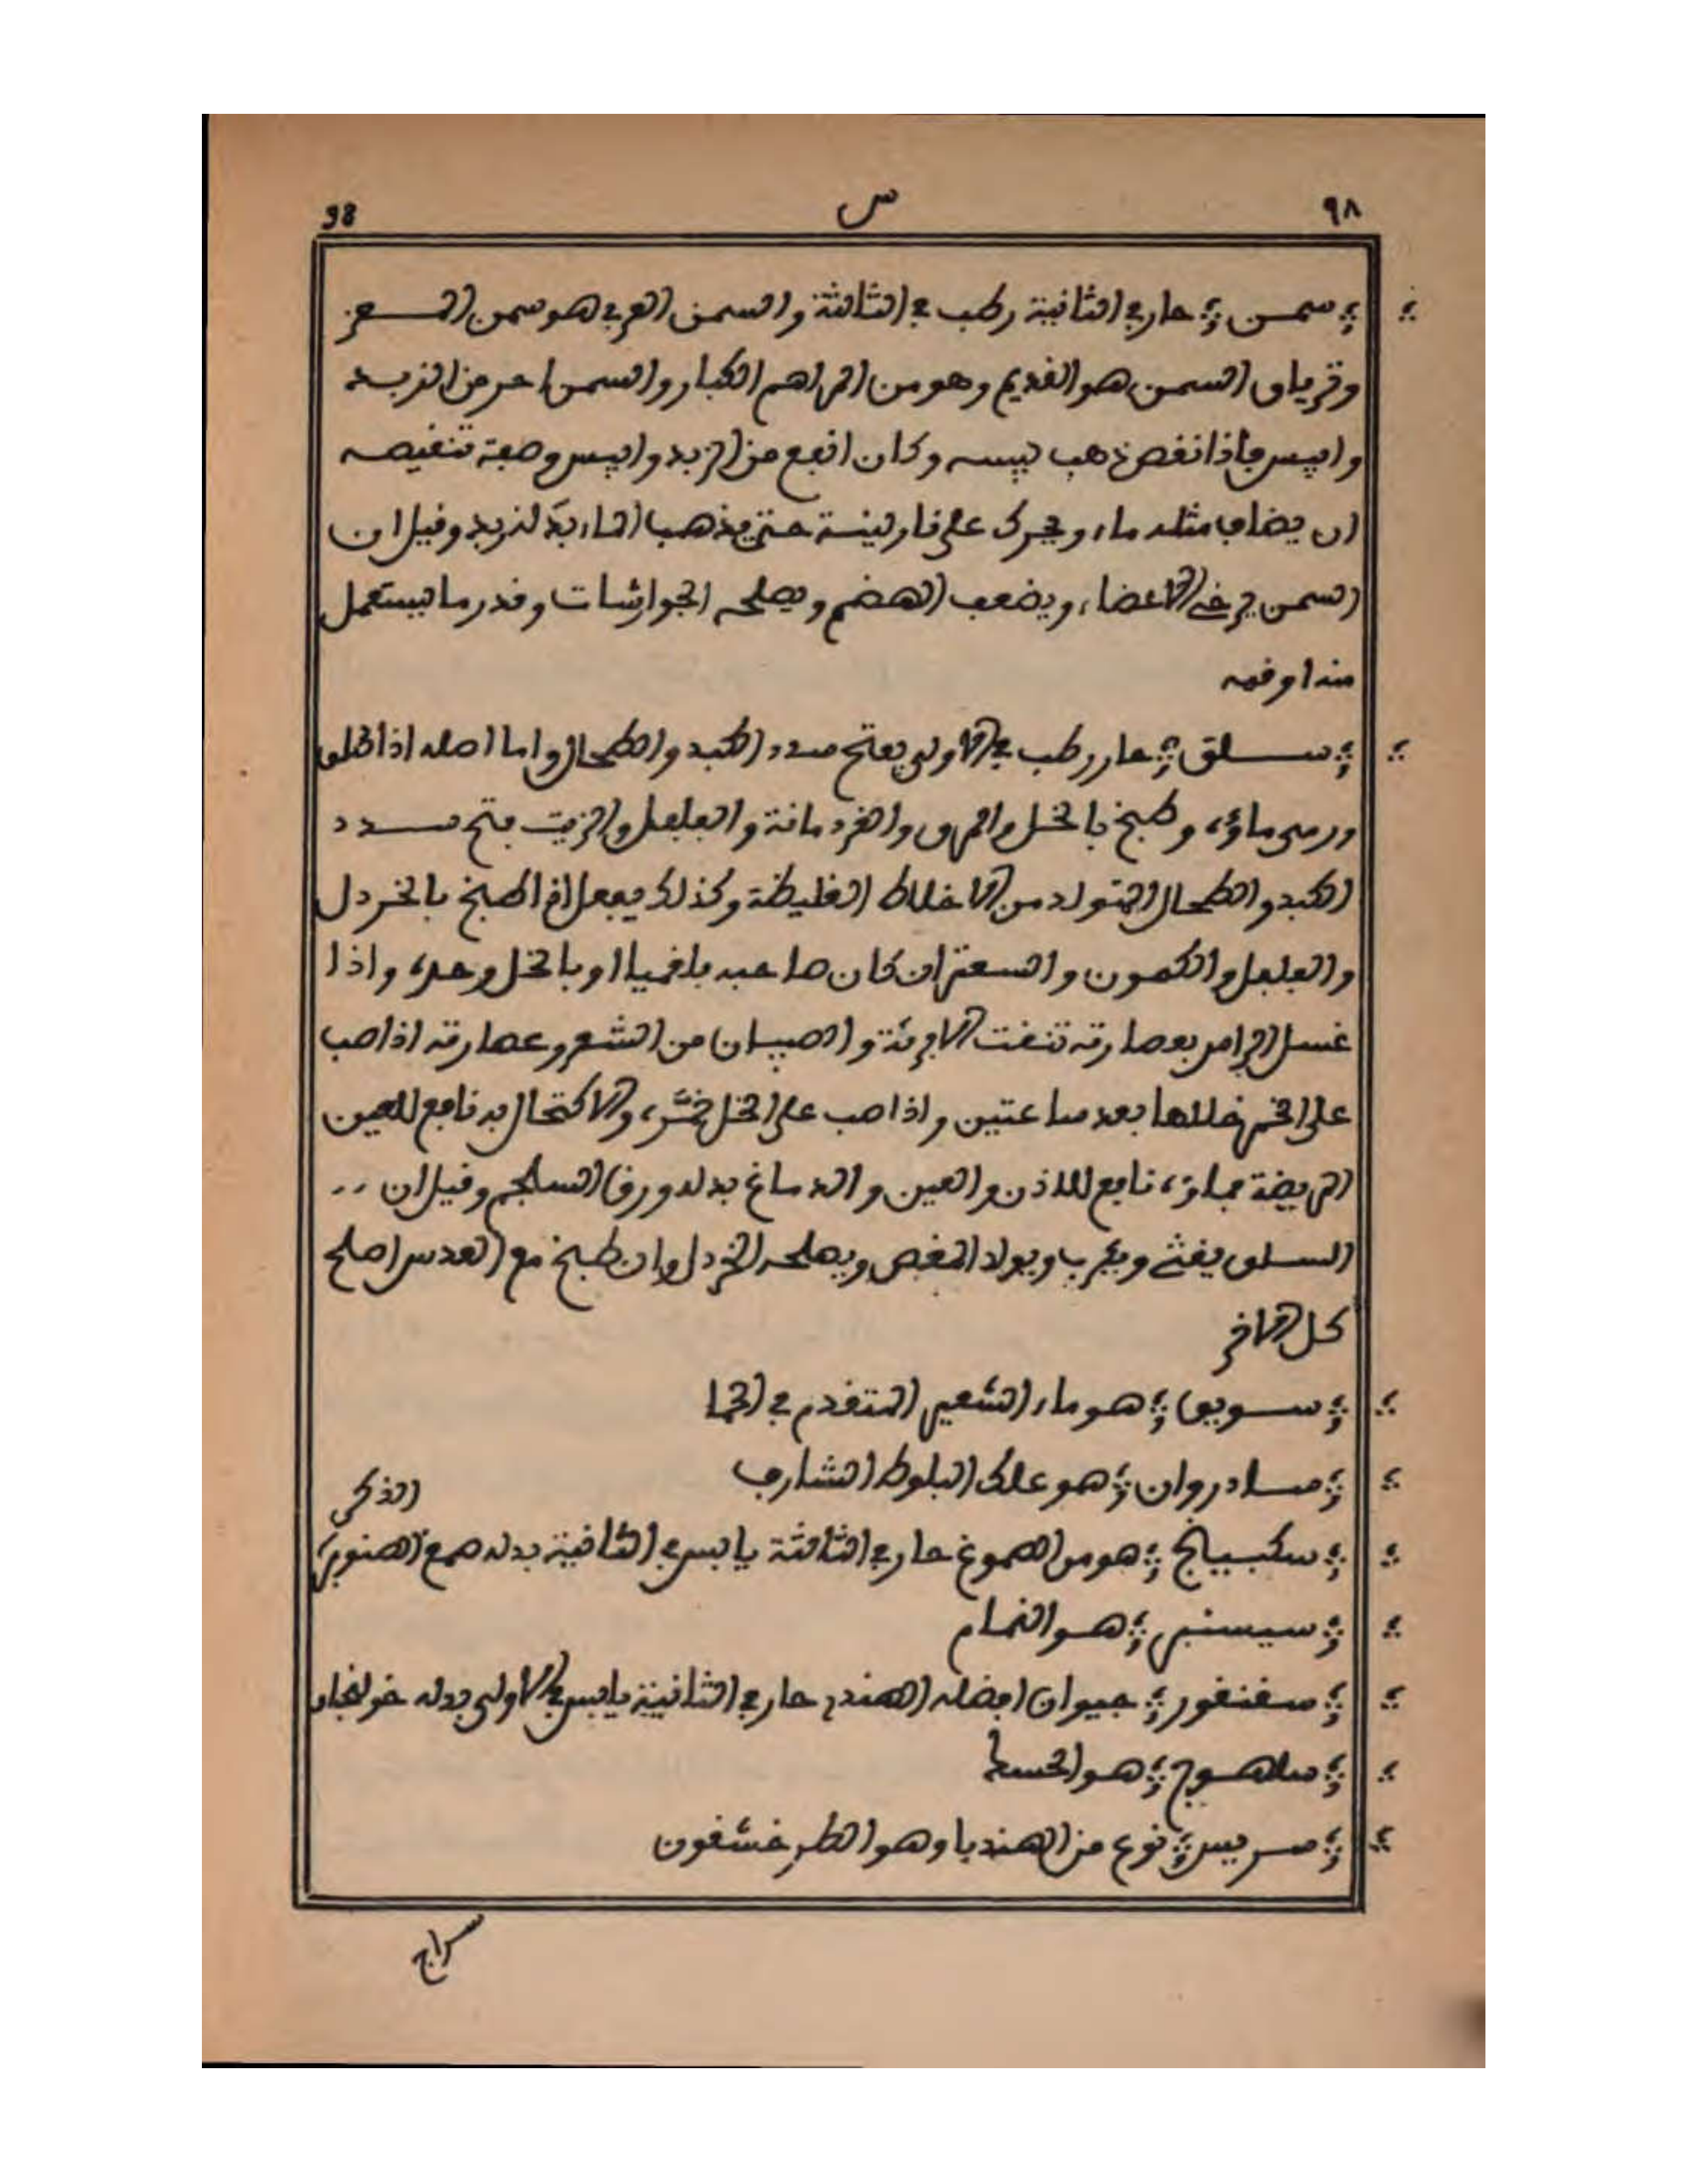 ٩٨ س 98
سمن حار في الثانية رطب في الثالثة والسمن العربي هو سمن المعز
وترياق السمن هو القديم وهو من المراهم الكبار والسمن احر من الزبد
وايبس فاذا نقص ذهب يبسه وكان انفع من الزبد وايبس وصفة تنقيصه
ان يضاف مثله ماء ويحرك على نار لينة حتى يذهب الماء بدله زبد وقيل ان
السمن يرخي الاعضاء ويضعف الهضم ويصلحه الجوارشات وقدر ما يستعمل
منه اوقية
سلق حار رطب في الاولى يفتح سدد الكبد والطحال واما اصله اذا سلق
ورمى ماؤه وطبخ بالخل والمرى والقردمانة والفلفل والزيت فتح سدد
الكبد والطحال المتولد من الاخلاط الغليظة وكذلك يفعل اذا طبخ بالخردل
والفلفل والكمون والسعتر ان كان صاحبه بلغميا او بالخل وحده واذا
غسل الراس بعصارته تنقت الابرية والصيبان من الشعر وعصارته اذا صب
على الخمر خللها بعد ساعتين واذا صب على الخل خمره والاكتحال به نافع للعين
المريضة نافع للاذن والعين والدماغ بدله ورق السلجم وقيل ان
السلق يغثي ويكرب ويولد المغص ويصلحه الخردل وان طبخ مع العدس اصلح
كل الاخر
سويق هو ماء الشعير المتقدم في الحا
سادروان هو علك البلوط الشارف
الذكر
سكبينج هو من الصموغ حار في الثالثة يابس في الثانية بدله صمغ الصنوبر
سيسنبر هو النمام
سقنقور حيوان افضله الهندي حار في الثانية يابس في الاولى بدله خولنجان
ساهوج هو الحسك
سريس نوع من الهندبا وهو الطرخشقون
سراج